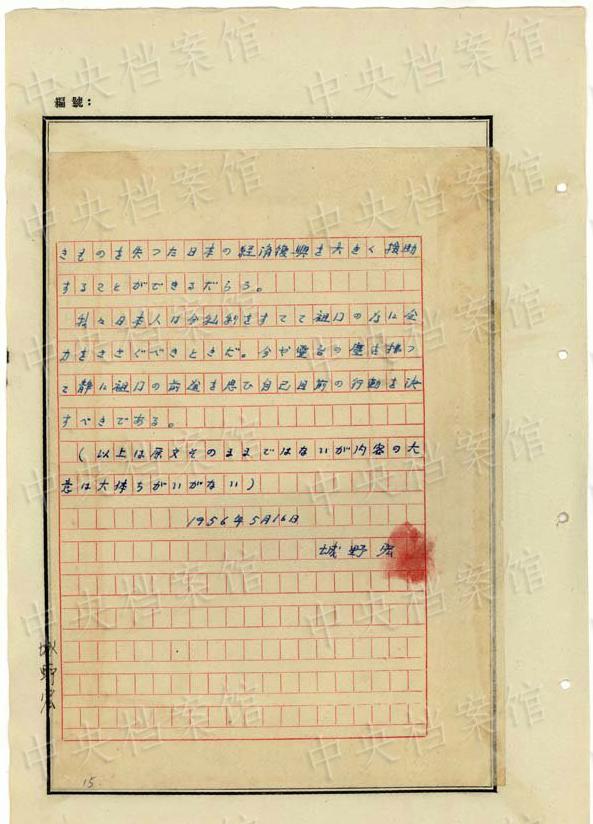 編號：
きものを失つた日本の経済復興を大きく援助
することができるだらう。
我々日本人は今私利をすてて祖国の為に全
力をささぐべきときだ。今や の塵を払つ
て静に祖国の前途を思ひ自己目前の行動を決
すべきである。
(以上は原文そのままではないが内容の大
意は大体ちがいがない)
1956年5月16日
城野宏
城野宏
15.
中央档案馆